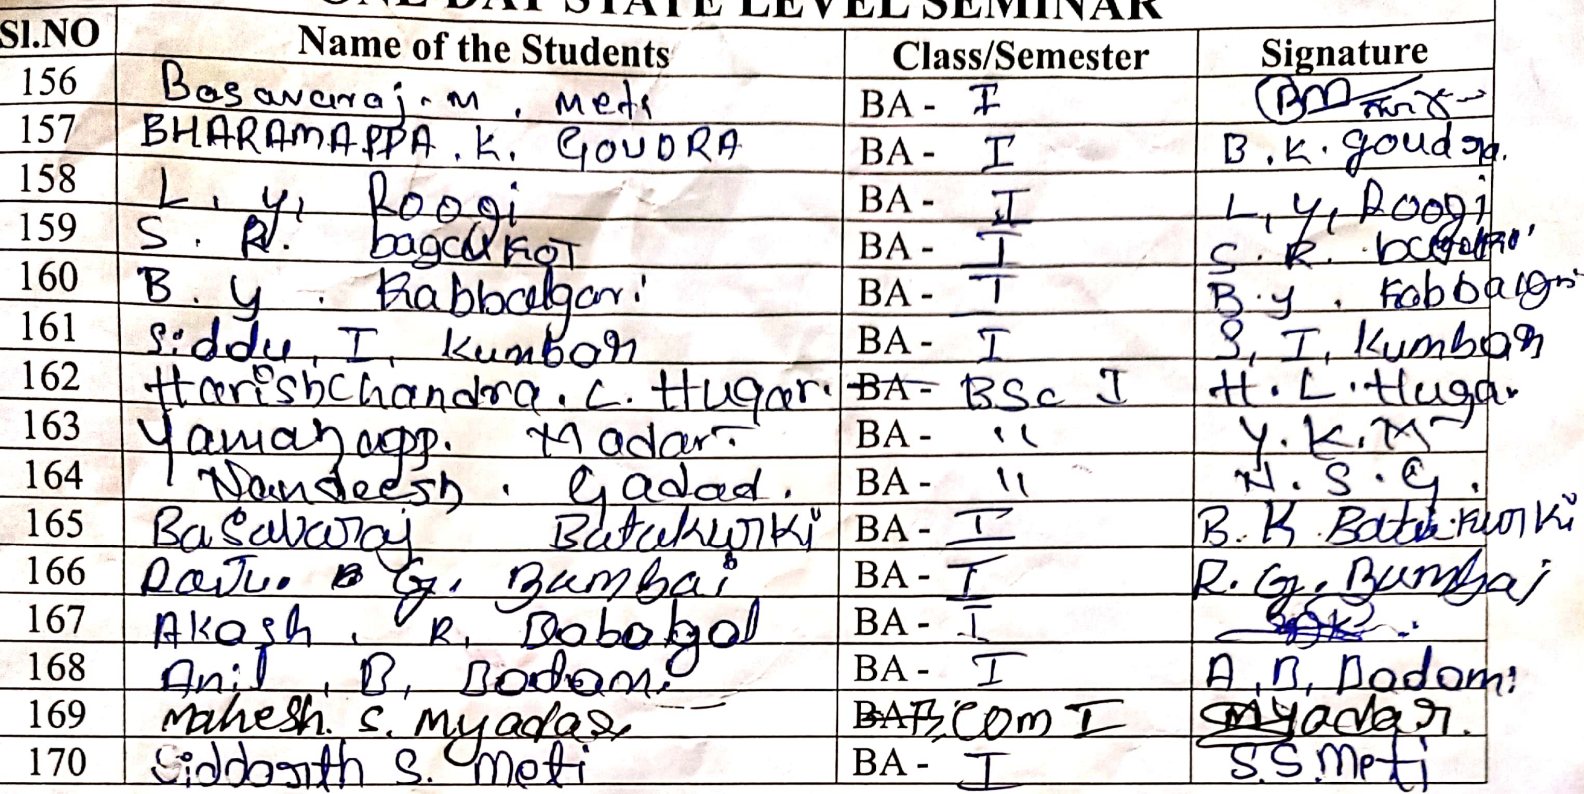 ONE DAY STATE LEVEL SEMINAR
Sl.NO Name of the Students Class/Semester Signature
156 Basavaraj. M. Meti BA - I
157 BHARAMAPPA. K. GOUDRA BA - I B. K. Goudra.
158 L, y, Roogi BA - I L, y, Roogi
159 S. R. bagalKOT BA - I S. R.
160 B. y. Kabbalgari BA - I B. y.
161 Siddu, I, Kumbar BA - I S, I, Kumbar
162 HarishChandra. L. Hugar. BA - BSc I H. L. Hugar
163 Madar. BA - " Y. K. M
164 Nandeesh. Gadad. BA - " N. S. G.
165 Basavaraj Batakurki BA - I B. K. Batakurki
166 Raju. B G. Bumbai BA - I R. G. Bumbai
167 Akash. R. Babalgol BA - I
168 Anil, B, Badami BA - I A, B, Badami
169 Mahesh. S. Myadar BA B.Com I Myadar.
170 Siddarth S. Meti BA - I S.S.Meti